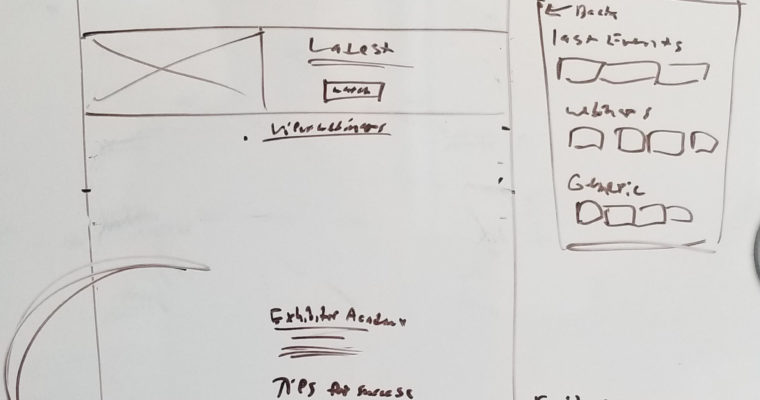 Latest
watch
View webinars
Exhibitor Academy
Tips for success
← Back
last Events
webinars
Generic